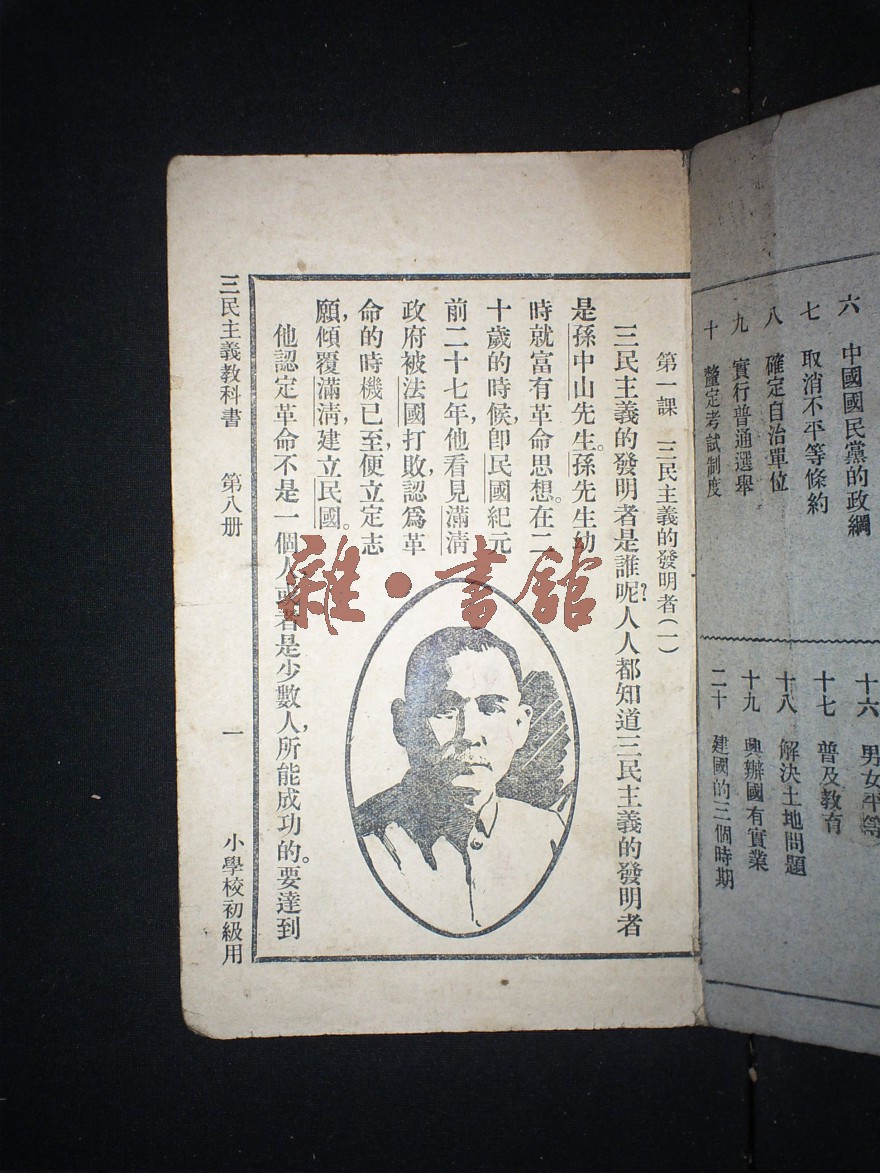 六　中國國民黨的政綱
七　取消不平等條約
八　確定自治單位
九　實行普通選舉
十　釐定考試制度
十六　男女平等
十七　普及教育
十八　解決土地問題
十九　興辦國有實業
二十　建國的三個時期
第一課　三民主義的發明者(一)
三民主義的發明者是誰呢?人人都知道三民主義的發明者
是孫中山先生。孫先生幼
時就富有革命思想。在二
十歲的時候,卽民國紀元
前二十七年,他看見滿淸
政府被法國打敗,認爲革
命的時機已至,便立定志
願,傾覆滿淸,建立民國。
他認定革命不是一個人或者是少數人,所能成功的。要達到
三民主義教科書　第八册　一　小學校初級用
雜·書館